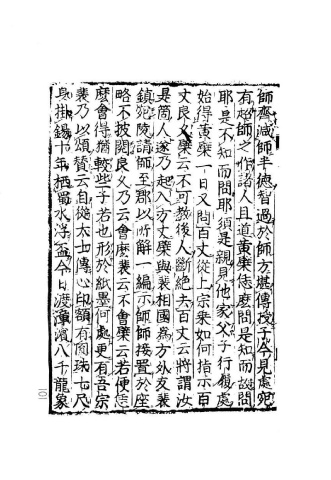 師齊減師半德智過於師方堪傳授子今見處宛
有超師之作諸人且道黃檗恁麽問是知而故問
耶是不知而問耶須是親見他家父子行履處
始得黃檗一日又問百丈從上宗乘如何指示百
丈良久檗云不可教後人斷絕去百丈云將謂汝
是箇人遂乃起入方丈檗與裴相國為方外友裴
鎮宛陵請師至郡以所解一編示師師接置於座
略不披閱良久乃云會麽裴云不會檗云若便恁
麽會得猶較些子若也形於紙墨何處更有吾宗
裴乃以頌贊云自從大士傳心印額有圓珠七尺
身掛錫十年栖蜀水浮盃今日渡漳濱八千龍象
101